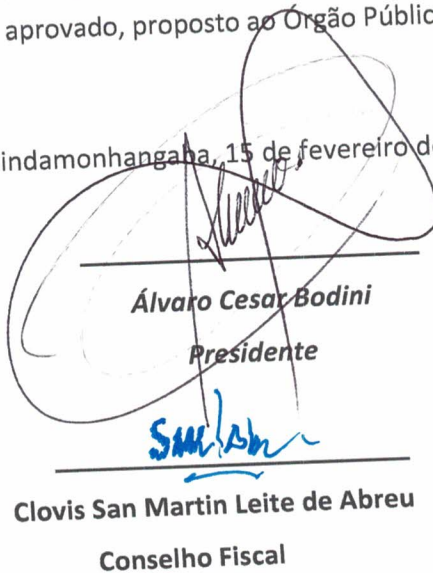 aprovado, proposto ao Órgão Públic
indamonhangaba, 15 de fevereiro d
Álvaro Cesar Bodini
Presidente
Clovis San Martin Leite de Abreu
Conselho Fiscal